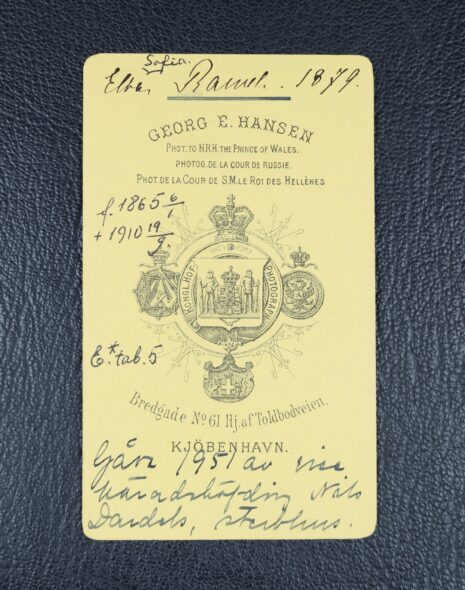 Sofia.
Ebba Ramel. 1879.
GEORG E. HANSEN
PHOT. TO H.R.H. THE PRINCE OF WALES.
PHOTOG. DE LA COUR DE RUSSIE.
PHOT DE LA COUR DE S.M. LE ROI DES HELLÈNES
f. 1865 6/1
+ 1910 19/9.
KONGL. HOF PHOTOGRAPH.
E.* tab. 5
Bredgade No 61 Hj. af Toldbodveien.
KJÖBENHAVN.
Gåva 1951 av vice
häradshöfding Nils
Dardels, sterbhus.